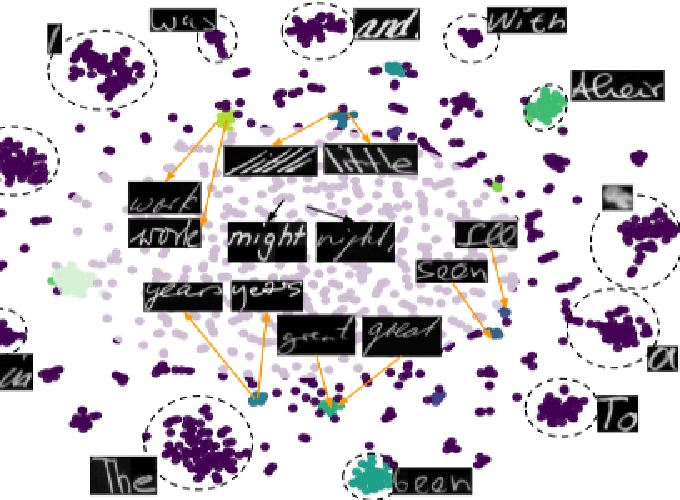 I was and With
their
little
work
work might night,
see
seen
years years
great great
in a
To
The been